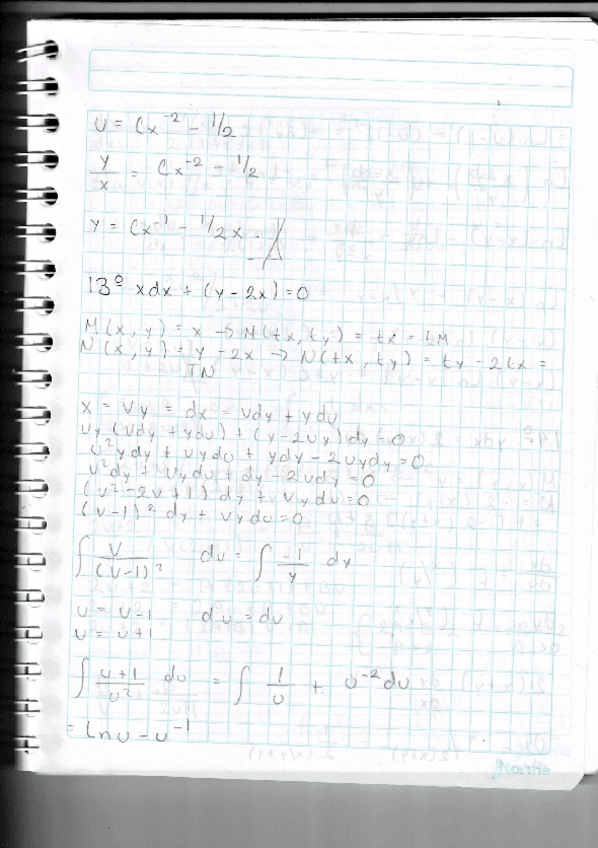 u = Cx⁻² - 1/2
y/x = Cx⁻² - 1/2
y = Cx⁻¹ - 1/2 x .
13º xdx + (y - 2x) = 0
M(x, y) = x → M(tx, ty) = tx = tM
N(x, y) = y - 2x → N(tx, ty) = ty - 2tx =
TN
x = vy = dx = vdy + ydv
vy (vdy + ydv) + (y - 2vy) dy = 0
v²ydy + vydv + ydy - 2vydy = 0
v²dy + vydv + dy - 2vdy = 0
(v² - 2v + 1) dy + vydv = 0
(v - 1)² dy + vydv = 0
∫ v/(v-1)² dv = ∫ -1/y dy
u = v-1 du = dv
v = u+1
∫ u+1/u² du = ∫ 1/u + u⁻² du
= Ln u - u⁻¹